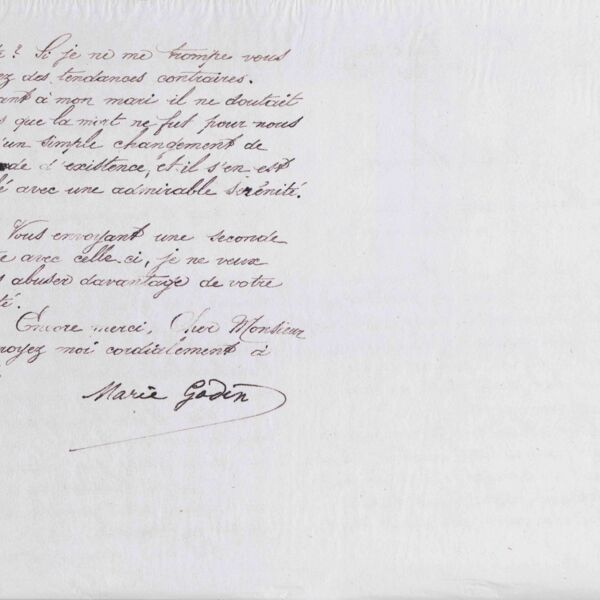 ? Si je ne me trompe vous
ez des tendances contraires.
ant à mon mari il ne doutait
s que la mort ne fut pour nous
'un simple changement de
de d'existence, et il s'en est
é avec une admirable sérénité.
Vous envoyant une seconde
e avec celle-ci, je ne veux
s abuser davantage de votre
té.
Encore merci, Cher Monsieur
royez moi cordialement à
Marie Godin